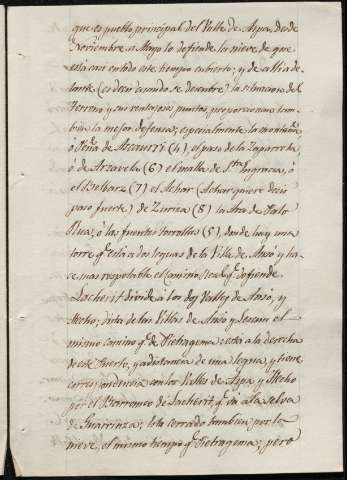 que es pueblo principal del Valle de Aspa, desde
Noviembre a Mayo lo defiende la nieve de que
está casi en todo este tiempo cubierto; y de alli ade
lante (es decir cuando se descubre) la situacion del
Terreno y sus ventajosos puntos, proporcionan tam
bien la mejor defensa; especialmente la montaña,
ó Peña de (4) el paso de la Zaparreta,
ó de Arzavela (6) el malla de Sta. Engracia, ó
el (7) el Achar (Achar quiere decir
paso fuerte) de Zuriza (8) la Ara de
ó las fuertes torrallas (5), donde hay una
torre qe. está a dos leguas de la Villa de Ansó y ha
ce mas respetable el camino Real qe. defiende.
Lacherit divide á los dos Valles de Ansó, y
Hecho; dista de las Villas de Ansó y Lescun el
mismo camino qe. de Petragema: está a la derecha
de este Puerto, y a distancia de una legua, y tiene
correspondencia con los Valles de Aspa y Hecho
por el Barranco de Lacherit, qe. vá á la selva
de Guarrinza; esta cerrado tambien por la
nieve, el mismo tiempo qe. Petragema; pero